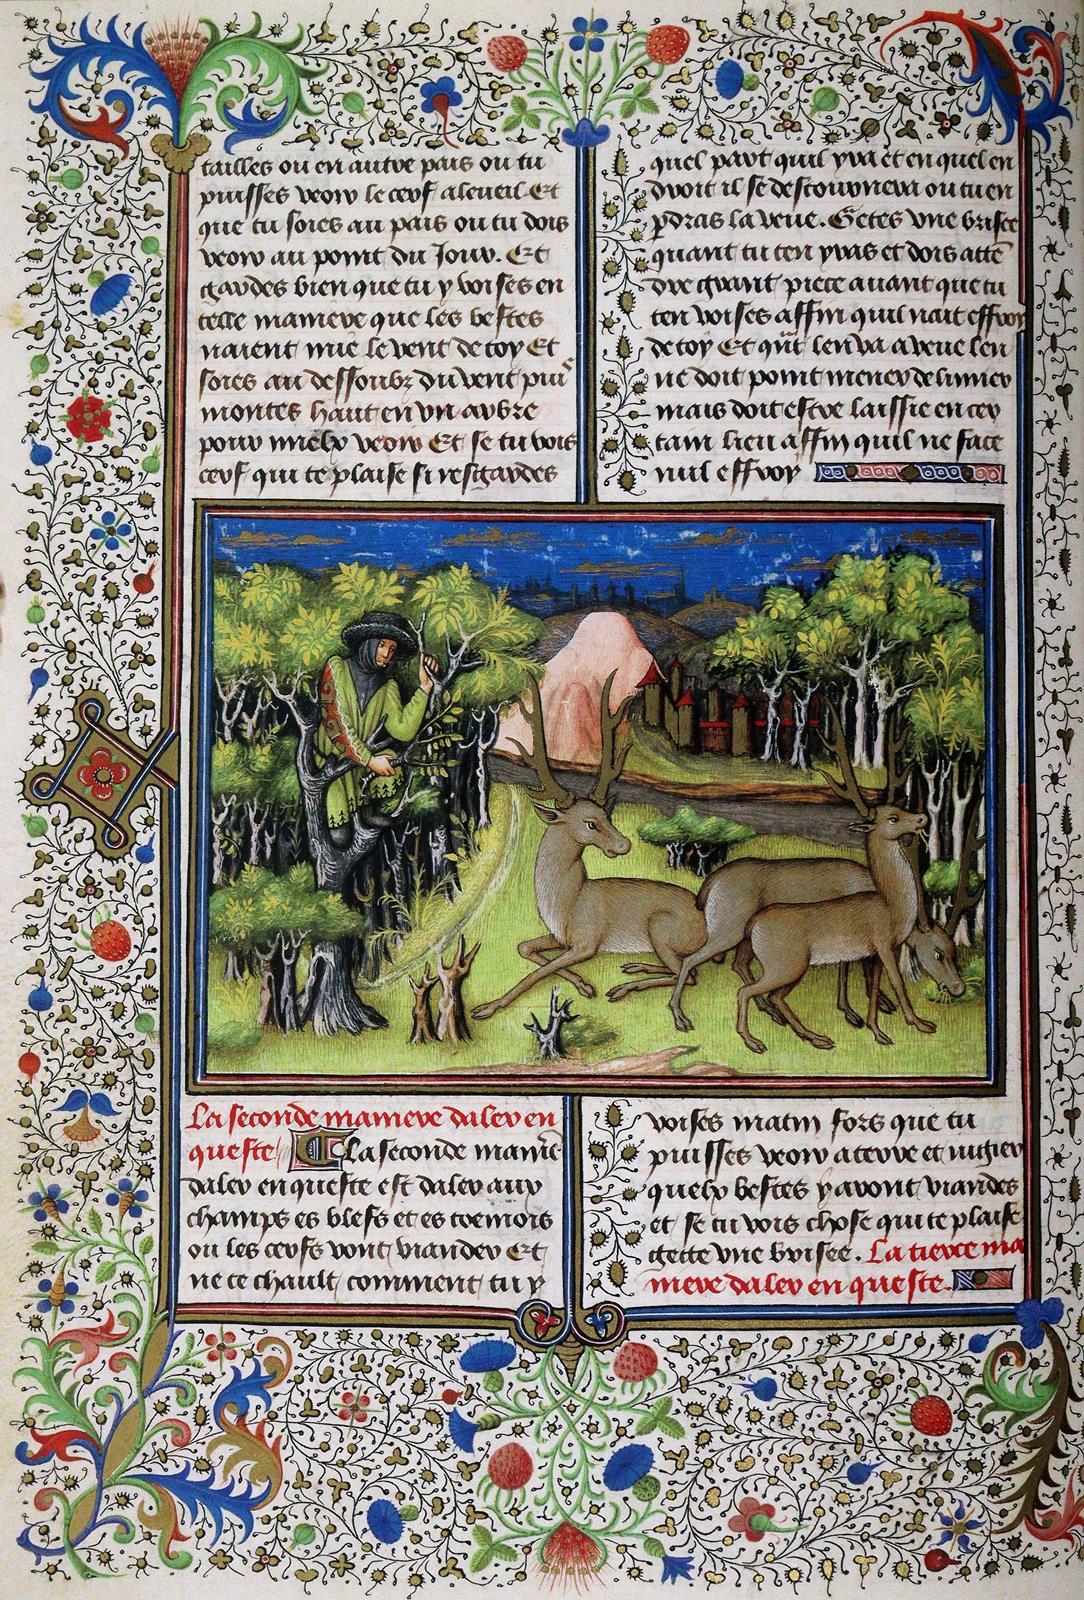 tailles ou en autre pais ou tu
puisses veoir le cerf a lueil Et
que tu soies au pais ou tu dois
veoir au point du Jour. Et
gardes bien que tu y voises en
telle maniere que les bestes
naient mie le vent de toy Et
soies au dessoubz du vent puis
montes hault en un arbre
pour mielx veoir Et se tu vois
cerf qui te plaise si resgardes
quel part quil yra et en quel en
droit il se destournera ou tu en
perdras la veue. Getes une brisee
quant tu ten yras et dois atten
dre grant piece avant que tu
ten voises affin quil nait effroy
de toy Et quant len va a veue len
ne doit point mener de limier
mais doit estre laissie en cer
tain lieu affin quil ne face
nul effroy
La seconde maniere daler en
queste La seconde maniere
daler en queste est daler aux
champs es blefs et es tremois
ou les cerfs vont viander Et
ne te chault comment tu y
voises matin fors que tu
puisses veoir a terre et jugier
quelx bestes y aront viandes
et se tu vois chose qui te plaise
gette une brisee. La tierce ma
niere daler en queste.